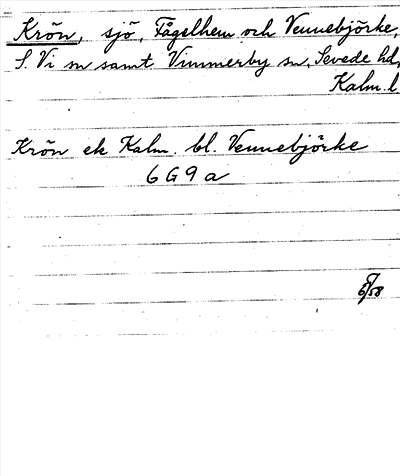 Krön, sjö, Fågelhem och Vennebjörke,
S. Vi sn samt Vimmerby sn, Sevede hd,
Kalm. l.
Krön ek Kalm. bl. Vennebjörke
6 G 9 a
/58